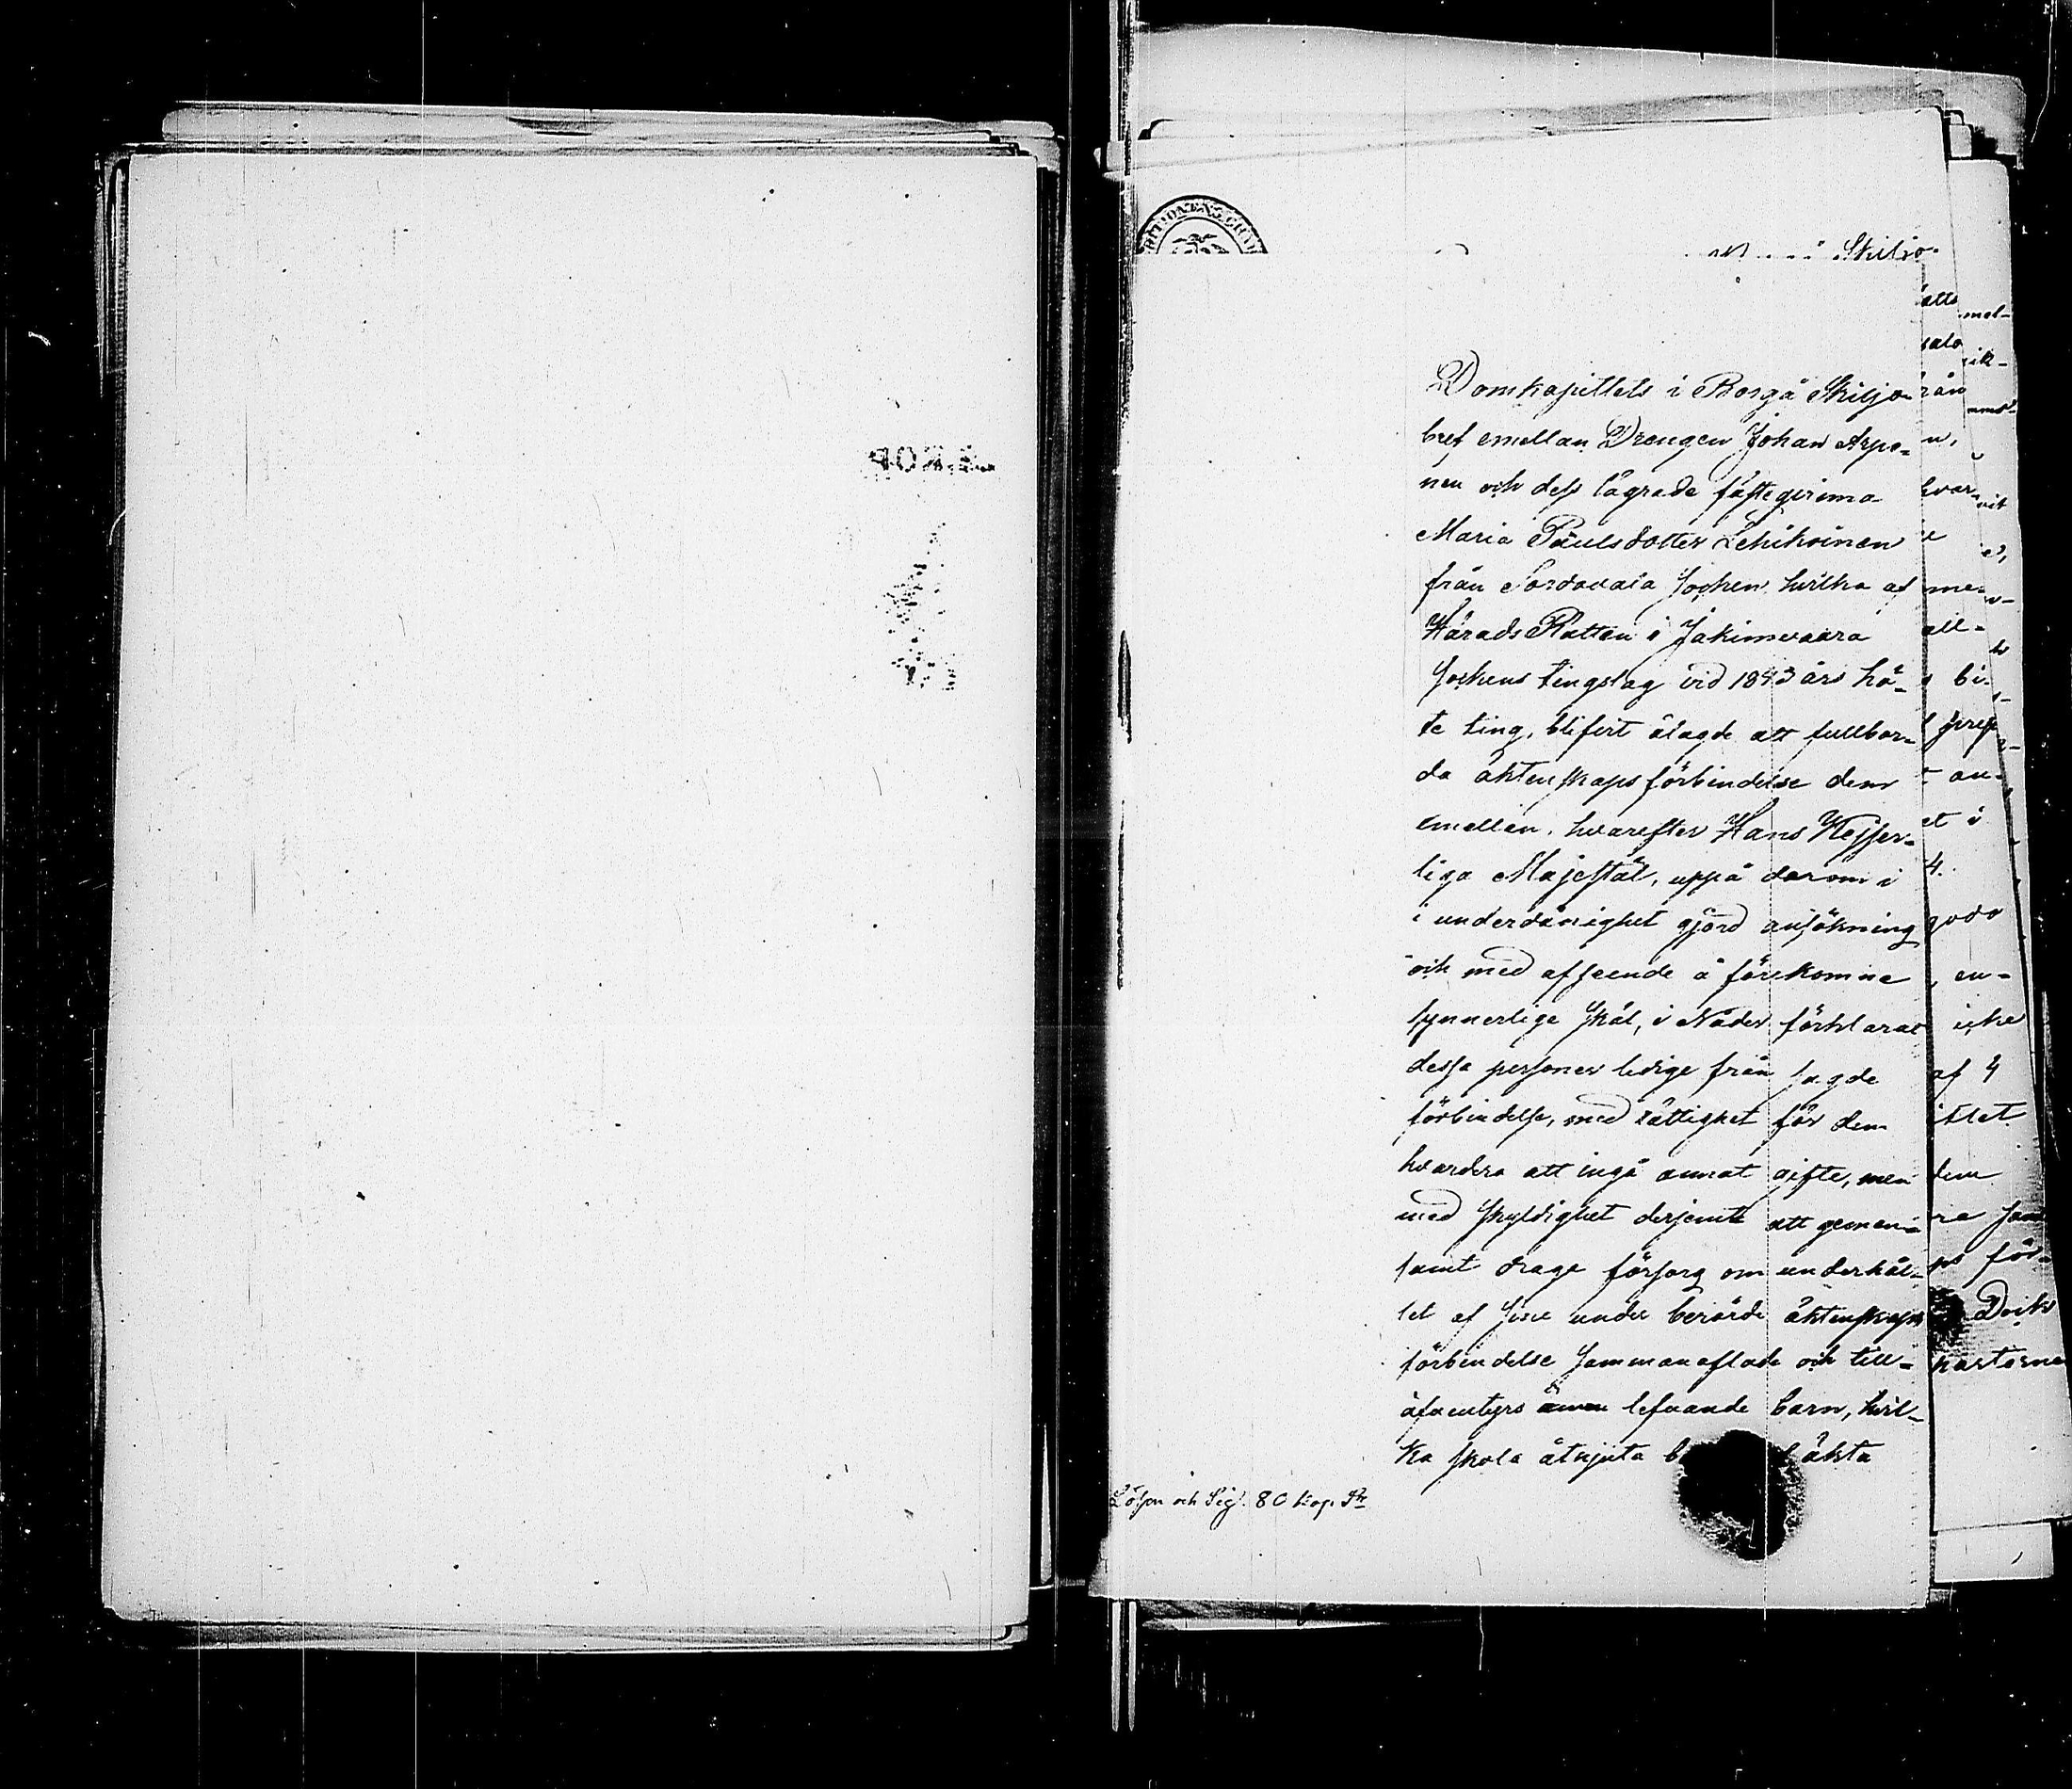 Skiljo-
Domkapitlets i Borgå Skiljo-
bref emellan Drengen Johan Arpo-
nen och dess lägrade fästeqvinna
Maria Paulsdotter Lehikoinen
från Sordavala Socken, hvilka af
Härads Rätten i Jakimvaara
Sockens tingslag vid 1843 års hö-
te ting, blifvit ålagde att fullbor-
da äktenskaps förbindelse dem
emellan, hvarefter Hans Kejser-
liga Majestät, uppå derom i
i underdånighet gjord ansökning
och med afseende å förekomne
synnerlige skäl, i Nåder förklarat
dessa personer ledige från sagde
förbindelse, med rättighet för dem
hvardera att ingå annat gifte, men
med skyldighet derjemte att gemen-
samt drage försorg om underhål-
let af sine under berörde äktenskaps
förbindelse sammanaflade och till-
äfventyrs ännu lefvande barn, hvil-
ka skola åtnjuta äkta
Lösen och Sigl. 80 kop. Sr